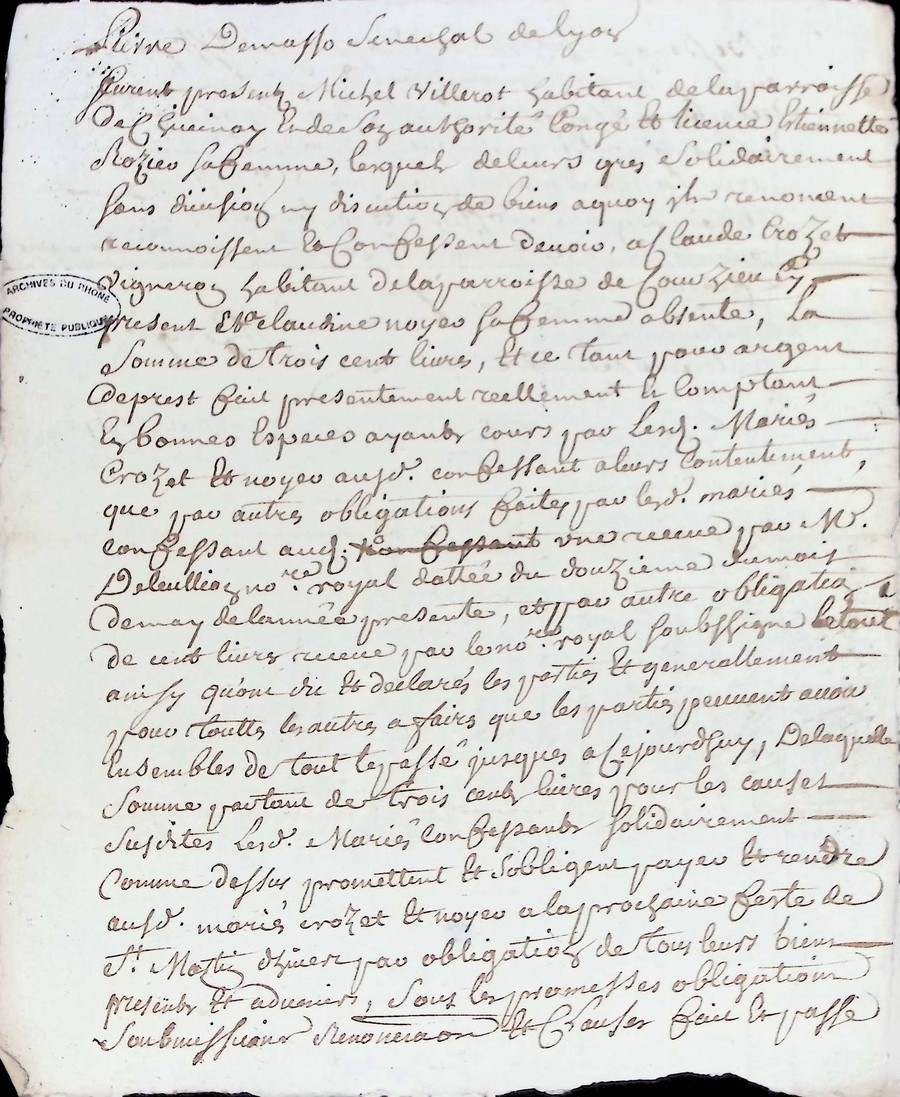 Pierre Demasso Senechal de Lyon
furent presents Michel Villerot habitant de la parroisse
De Chueinay En de Son authorité Congé Et licence Etiennette
Rozier sa femme, lesquels de leurs grés Solidairement
sans division ny discution de biens a quoy ils renoncent
reconnoissent Et Confessent devoir, a Claude Crozet
Vigneron habitant de la parroisse de Couzieu Cy
present Et a claudine noyer sa femme absente, La
Somme de trois cent livres, Et ce tant pour argent
de prest fait presentement reellement Et Comptant
En bonnes Especes ayants cours par Lesd. Mariés
Crozet Et noyer ausd. confessant a leurs Contentement,
que par autres obligations faites par lesd. mariés
confessant ausd. confessant une receue par Me.
Deleullion nore. royal dattée du douzieme du mois
de may de lannée presente, et par autre obligation
de cent livres receue par le nore. royal soubssigne le tout
ainsy qu'ont dit Et declarés les parties Et generallement
pour touttes les autres affaires que les parties peuvent avoir
Ensembles de tout le passé jusques a Cejourdhuy, De laquelle
Somme partant de trois cents livres pour les causes
Susdites Lesd. Mariés Confessants solidairement
Comme dessus promettent Et Sobligent payer Et rendre
ausd. mariés crozet Et noyer a la prochaine feste de
St. Martin d'hiver par obligation de tous leurs biens
presents Et advenirs, Sous les promesses obligations
Soubmissions Renonciaon Et Clauses fait Et passé
ARCHIVES DU RHONE
PROPRIETE PUBLIQUE